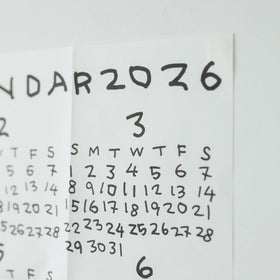 NDAR 2026
2 3
W T F S S M T W T F S
5 6 7 1 2 3 4 5 6 7
12 13 14 8 9 10 11 12 13 14
18 19 20 21 15 16 17 18 19 20 21
25 26 27 28 22 23 24 25 26 27 28
29 30 31
6
T F S